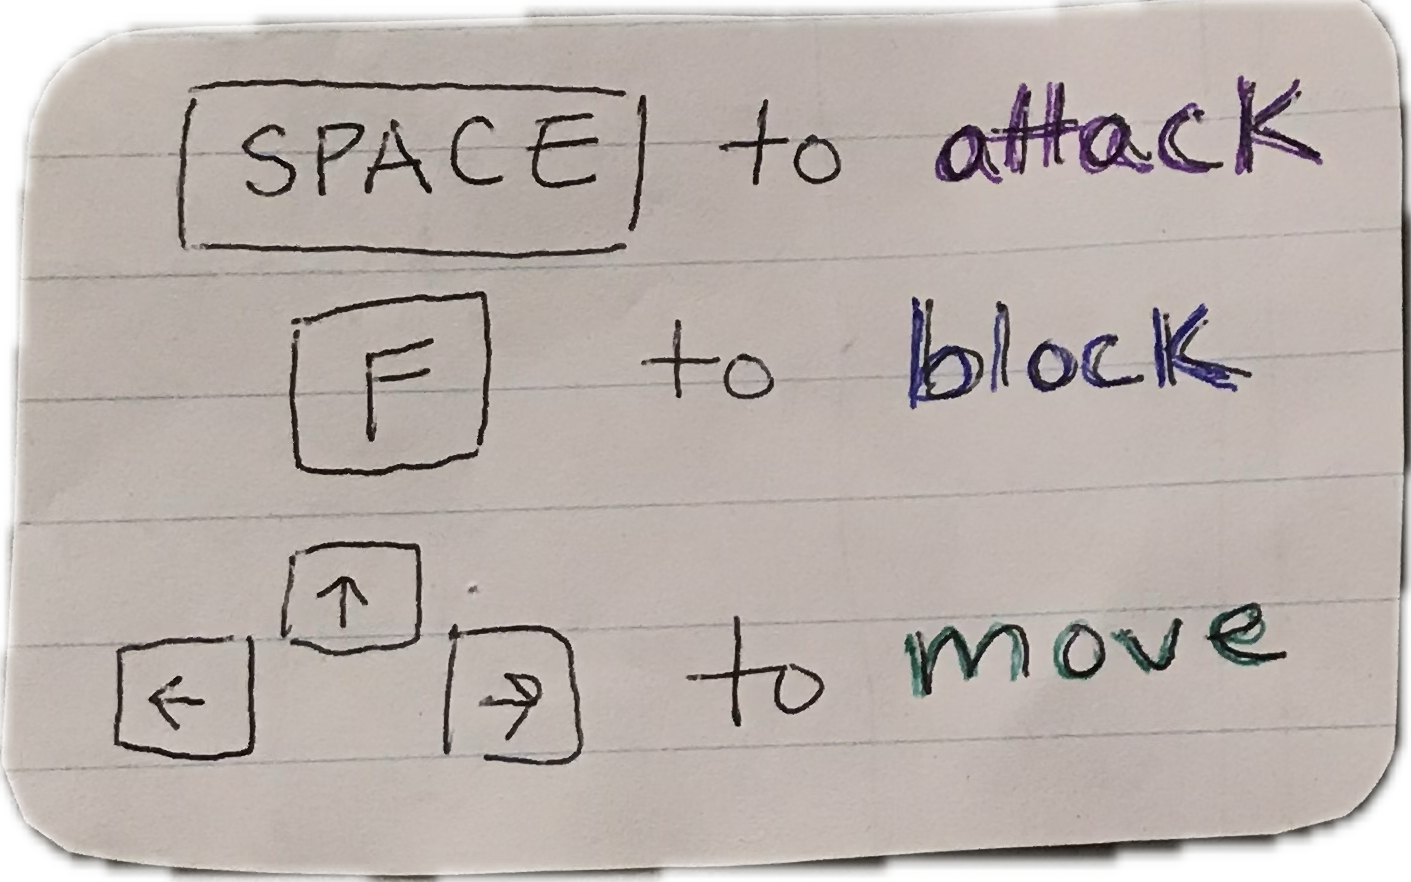 SPACE to attack
F to block
↑
← → to move